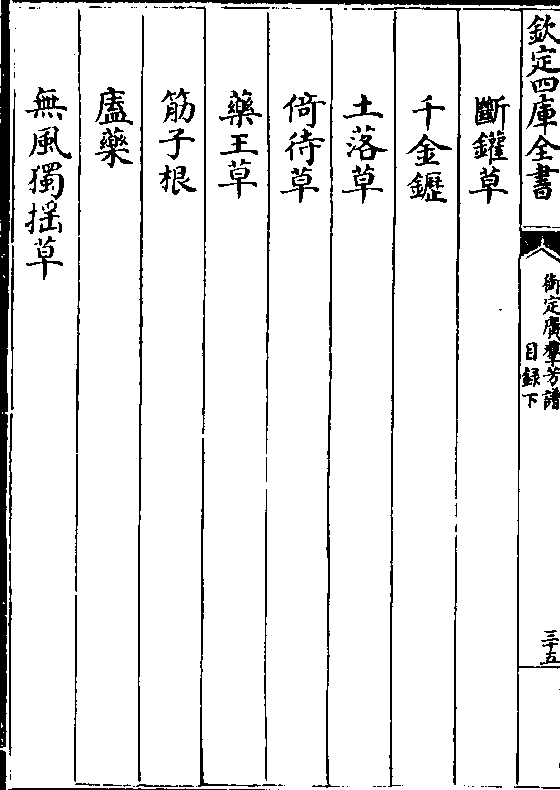 欽定四庫全書
御定廣羣芳譜
目録下
三十五
斷鑵草
千金鑺
土落草
倚待草
藥王草
筋子根
藘藥
無風獨揺草